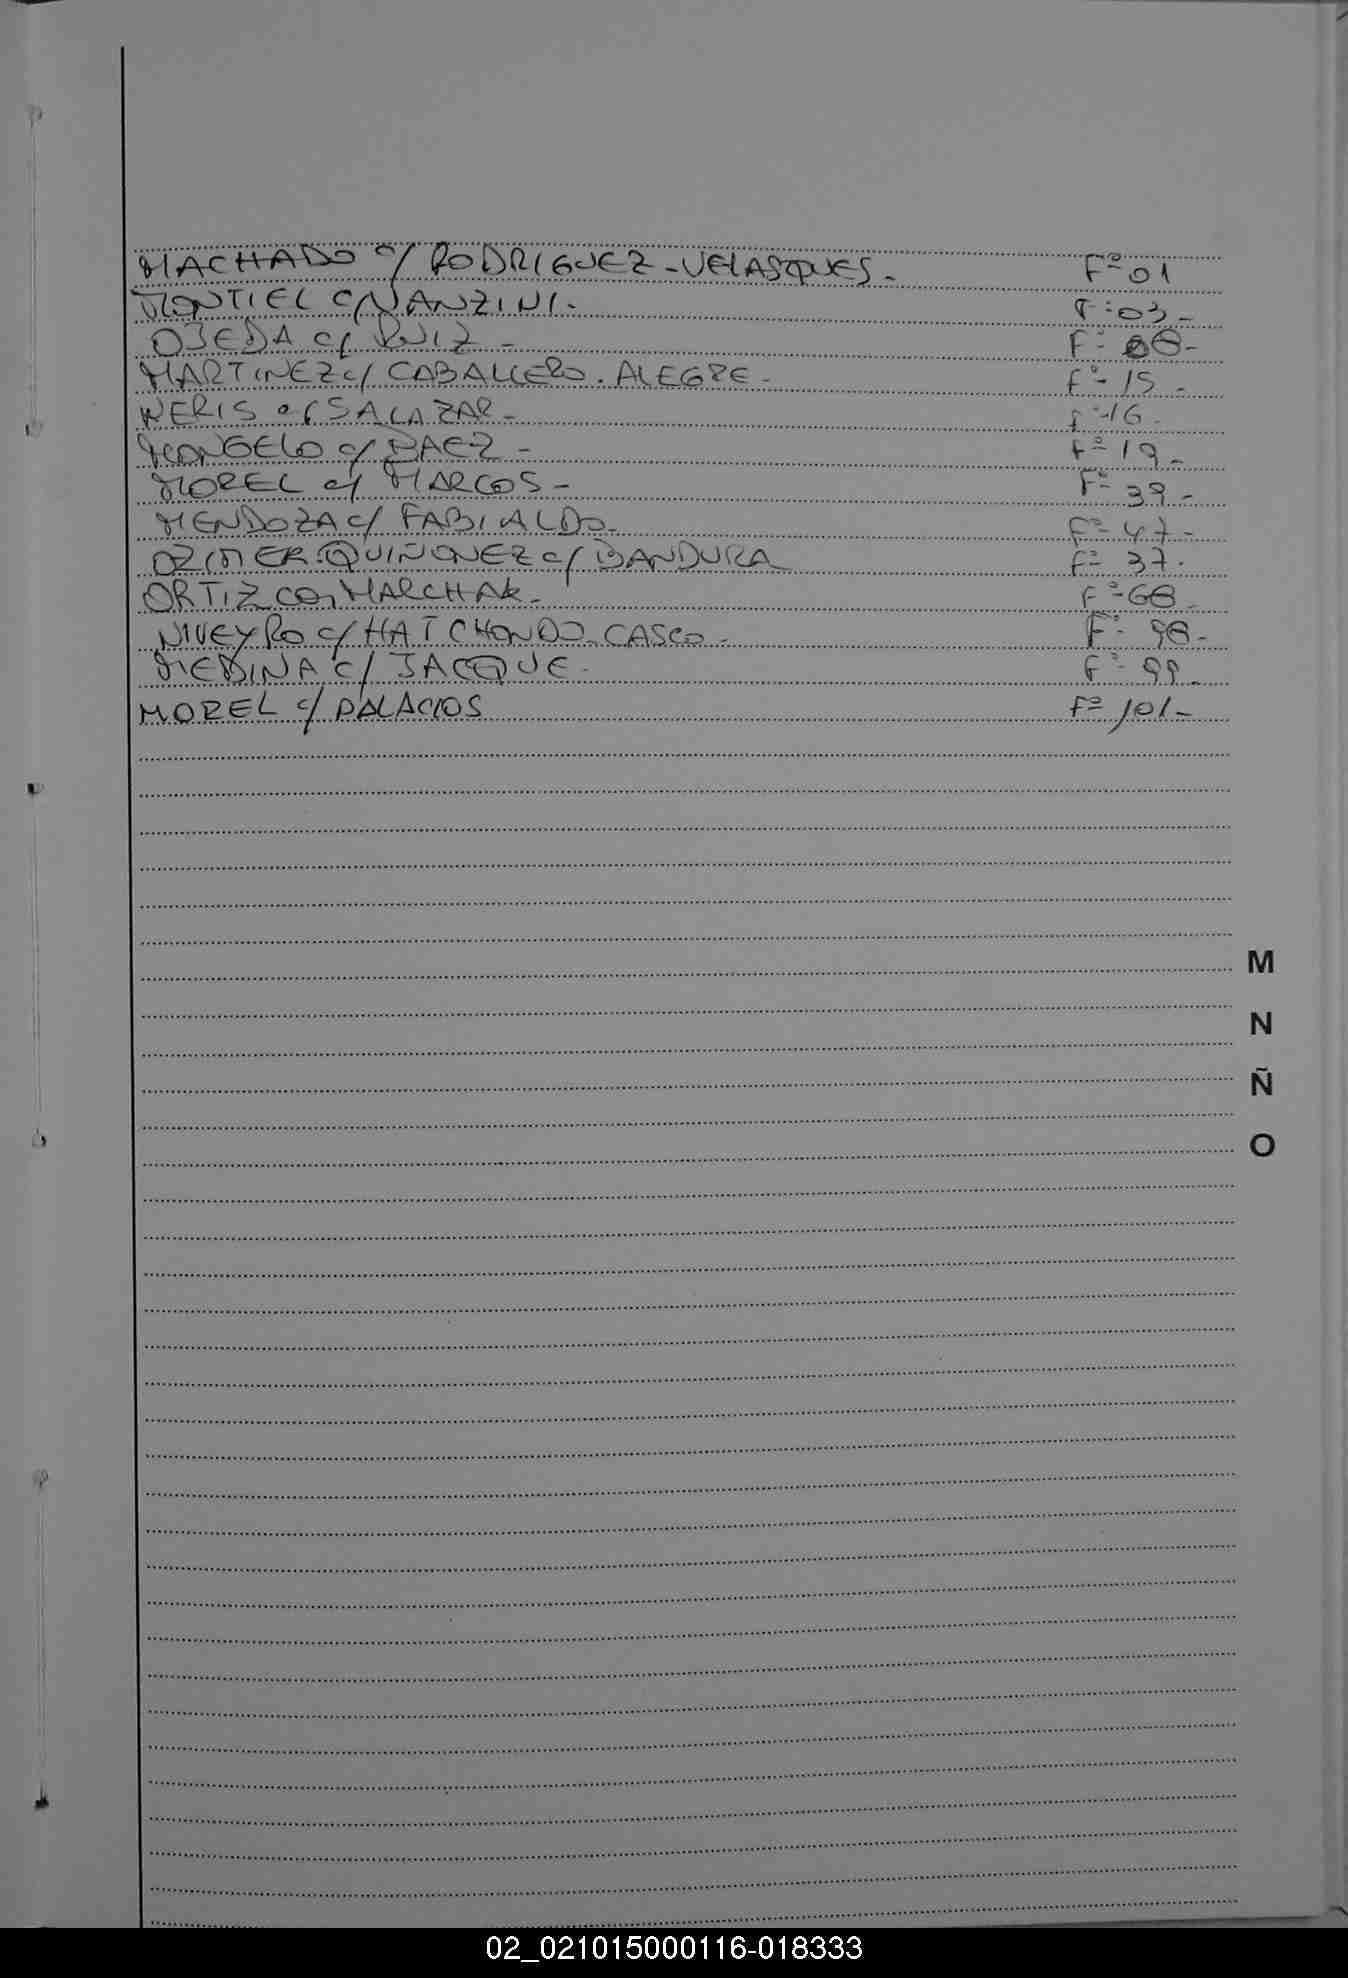 MACHADO c/ RODRIGUEZ - VELASQUES - Fº 01
MONTIEL C/ NANZINI. Fº 03 -
OJEDA c/ RUIZ - Fº 08 -
MARTINEZ c/ CABALLERO. ALEGRE - Fº 15 -
NERIS c/ SALAZAR - Fº 16 -
MONGELO c/ BAEZ - Fº 19 -
MOREL c/ MARCOS - Fº 39 -
MENDOZA c/ FABIALDO - Fº 47 -
QUIÑONEZ c/ BANDURA Fº 37 -
ORTIZ CON MARCHAK - Fº 68 -
NIVEYRO c/ HATCHONDO - CASCO - Fº 98 -
MEDINA c/ JACQUE - Fº 99 -
MOREL c/ PALACIOS Fº 101 -
M
N
Ñ
O
02_021015000116-018333